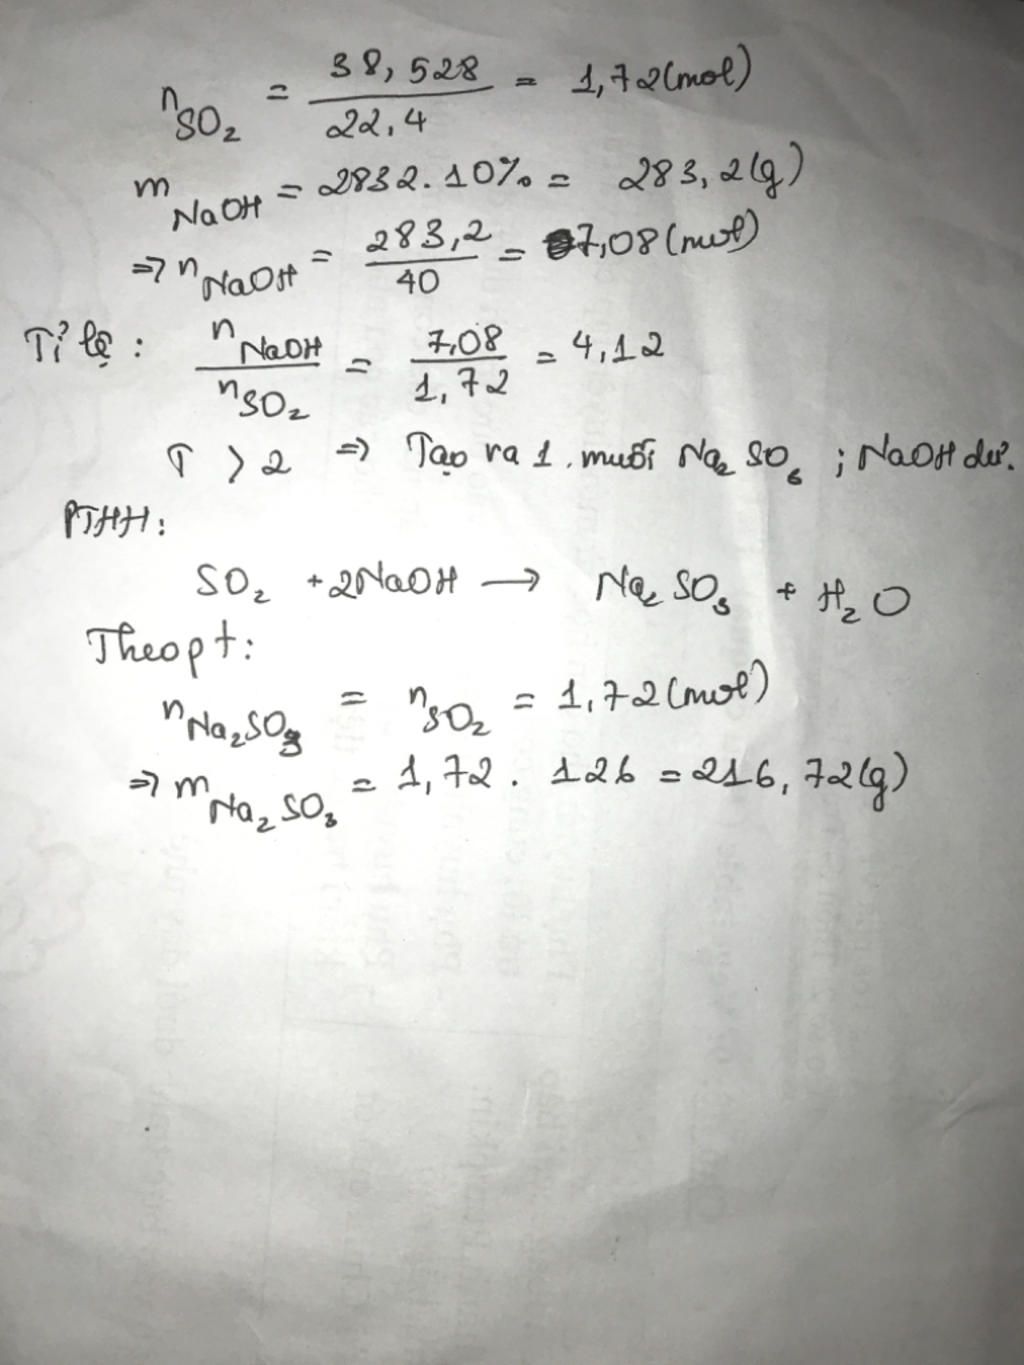 nSO₂ = 38,528 / 22,4 = 1,72 (mol)
mNaOH = 2832.10% = 283,2 (g)
=> nNaOH = 283,2 / 40 = 7,08 (mol)
Tỉ lệ : nNaOH / nSO₂ = 7,08 / 1,72 = 4,12
T > 2 => Tạo ra 1 muối Na₂SO₃ ; NaOH dư.
PTHH:
SO₂ + 2NaOH → Na₂SO₃ + H₂O
Theo pt:
nNa₂SO₃ = nSO₂ = 1,72 (mol)
=> mNa₂SO₃ = 1,72 . 126 = 216,72 (g)